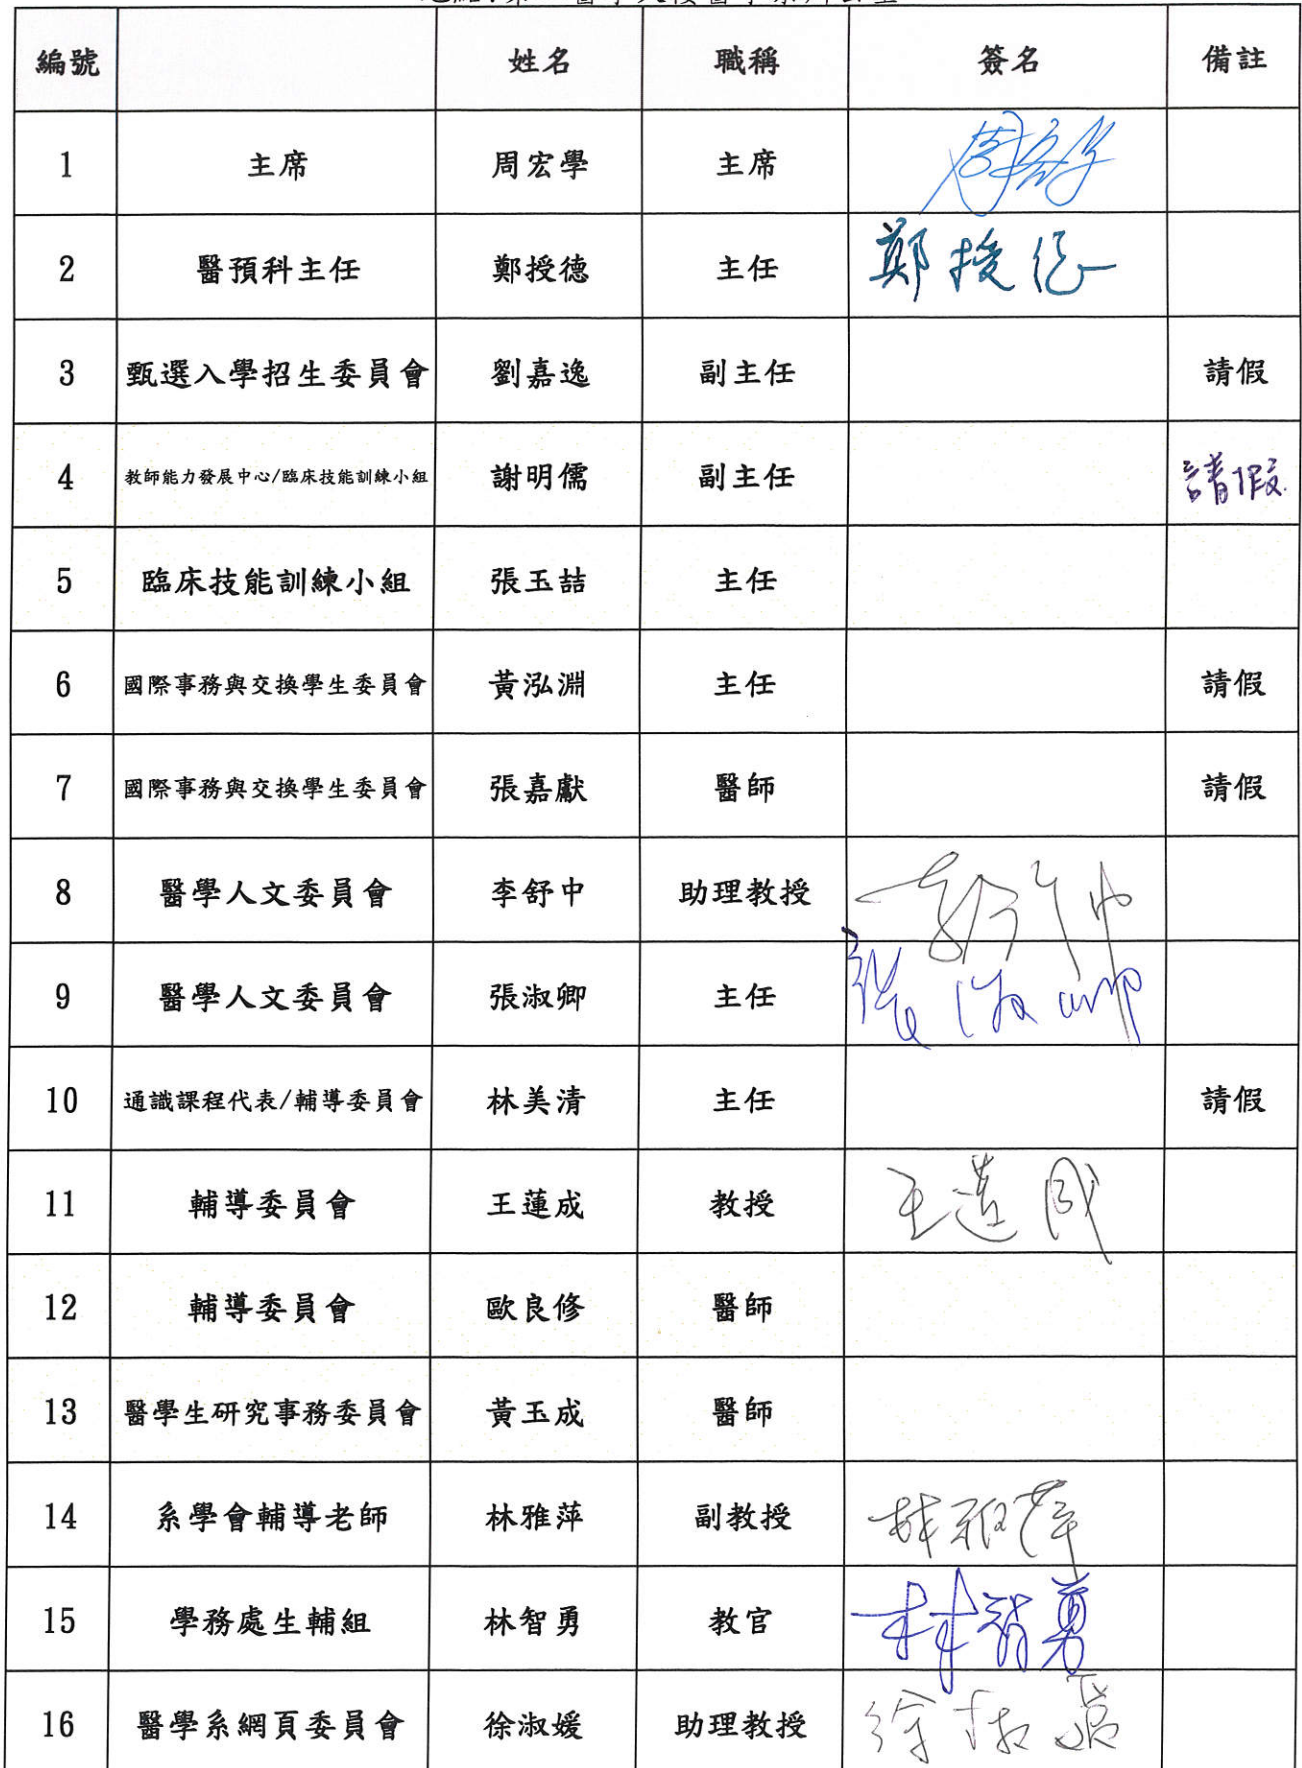 編號 姓名 職稱 簽名 備註
1 主席 周宏學 主席 周宏學
2 醫預科主任 鄭授德 主任 鄭授德
3 甄選入學招生委員會 劉嘉逸 副主任 請假
4 教師能力發展中心/臨床技能訓練小組 謝明儒 副主任 請假
5 臨床技能訓練小組 張玉喆 主任
6 國際事務與交換學生委員會 黃泓淵 主任 請假
7 國際事務與交換學生委員會 張嘉獻 醫師 請假
8 醫學人文委員會 李舒中 助理教授 李舒中
9 醫學人文委員會 張淑卿 主任 張淑卿
10 通識課程代表/輔導委員會 林美清 主任 請假
11 輔導委員會 王蓮成 教授 王蓮成
12 輔導委員會 歐良修 醫師
13 醫學生研究事務委員會 黃玉成 醫師
14 系學會輔導老師 林雅萍 副教授 林雅萍
15 學務處生輔組 林智勇 教官 林智勇
16 醫學系網頁委員會 徐淑媛 助理教授 徐淑媛